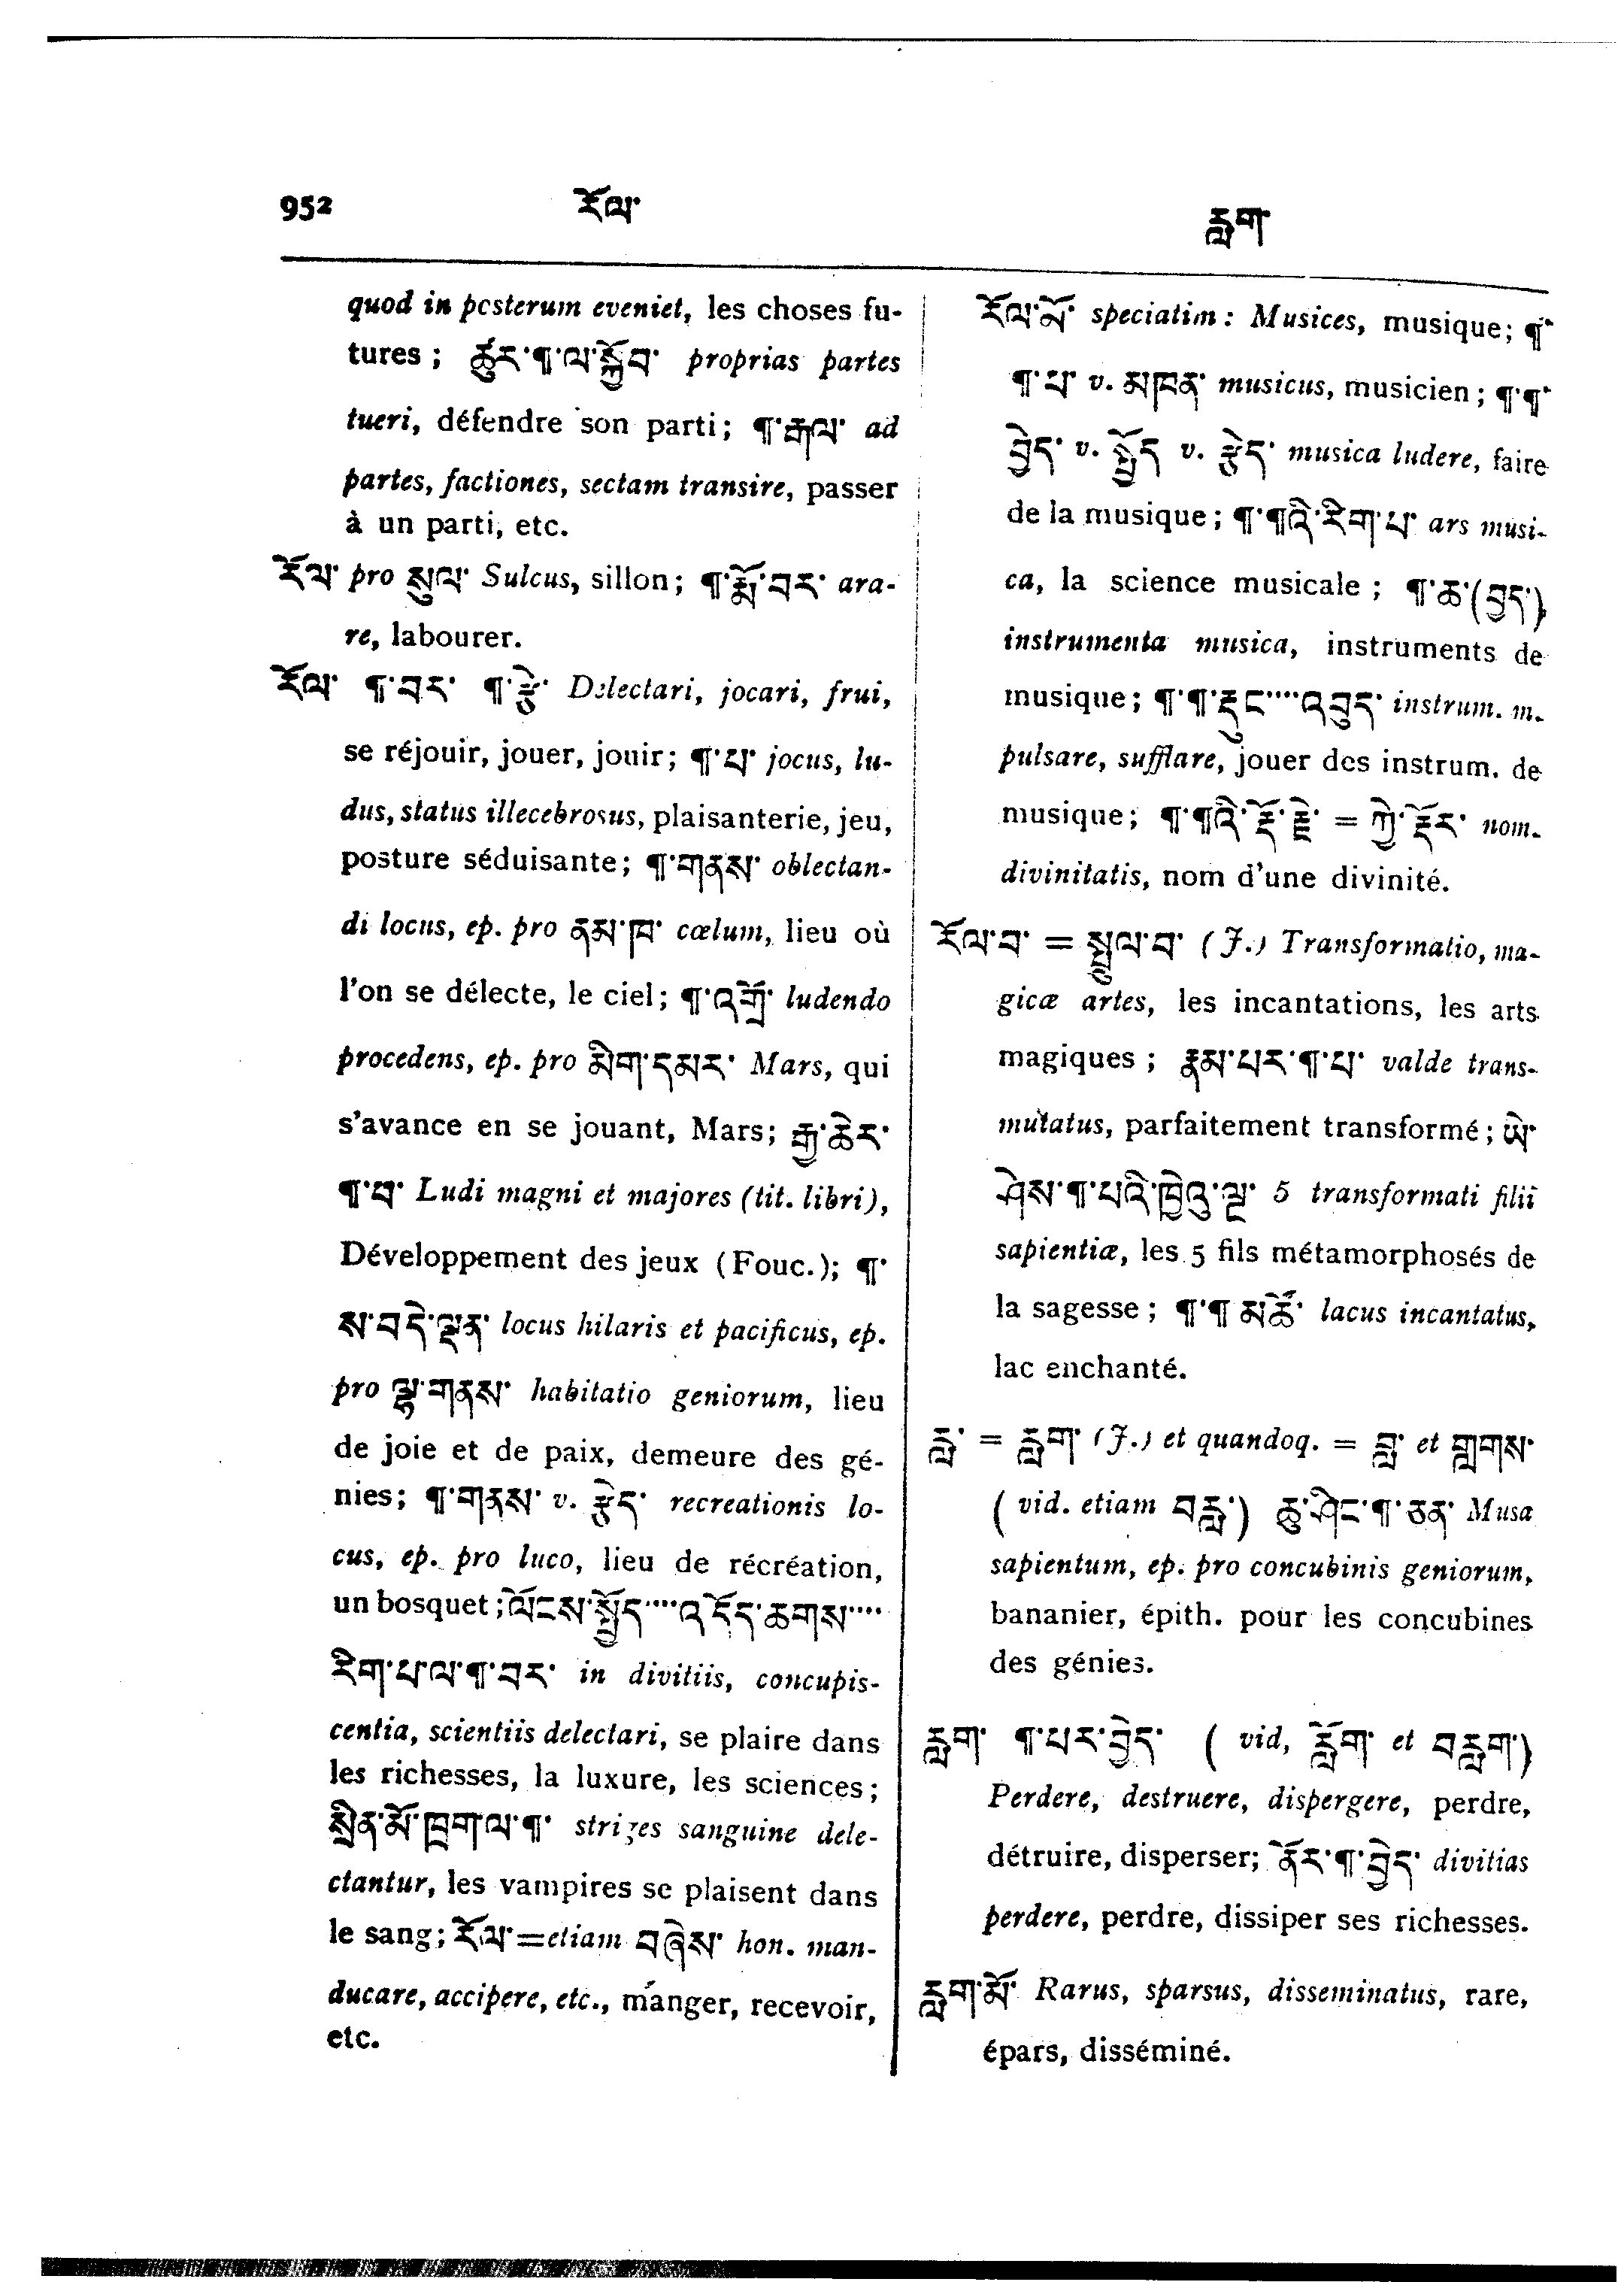 952 རོལ་ རླག་
quod in posterum eveniet, les choses fu-
tures ; ཚུར་¶་ལ་སྐྱོབ་ proprias partes
tueri, défendre son parti ; ¶་རྒལ་ ad
partes, factiones, sectam transire, passer
à un parti, etc.
རོལ་ pro སུལ་ Sulcus, sillon ; ¶་རྨོ་བར་ ara-
re, labourer.
རོལ་ ¶་བར་ ¶་རྩེ་ Delectari, jocari, frui,
se réjouir, jouer, jouir ; ¶་པ་ jocus, lu-
dus, status illecebrosus, plaisanterie, jeu,
posture séduisante ; ¶་གནས་ oblectan-
di locus, ep. pro ནམ་ཁ་ cœlum, lieu où
l'on se délecte, le ciel ; ¶་འགྲོ་ ludendo
procedens, ep. pro མིག་དམར་ Mars, qui
s'avance en se jouant, Mars ; རྒྱ་ཆེར་
¶་པ་ Ludi magni et majores (tit. libri),
Développement des jeux (Fouc.); ¶་
ས་བདེ་ལྡན་ locus hilaris et pacificus, ep.
pro ལྷ་གནས་ habitatio geniorum, lieu
de joie et de paix, demeure des gé-
nies ; ¶་གནས་ v. རྩེད་ recreationis lo-
cus, ep. pro luco, lieu de récréation,
un bosquet ; ལོངས་སྤྱོད་....འདོད་ཆགས་....
རིག་པ་ལ་¶་བར་ in divitiis, concupis-
centia, scientiis delectari, se plaire dans
les richesses, la luxure, les sciences ;
སྲིན་མོ་ཁྲག་ལ་¶་ striges sanguine dele-
ctantur, les vampires se plaisent dans
le sang ; རོལ་=etiam བཞེས་ hon. man-
ducare, accipere, etc., manger, recevoir,
etc.
རོལ་མོ་ speciatim : Musices, musique ; ¶་
¶་པ་ v. མཁན་ musicus, musicien ; ¶་¶་
བྱེད་ v. སྤྱོད v. རྩེད་ musica ludere, faire
de la musique ; ¶་¶འི་རིག་པ་ ars musi-
ca, la science musicale ; ¶་ཆ་(བྱད་)
instrumenta musica, instruments de
musique ; ¶་¶་རྡུང་....འབུད་ instrum. m.
pulsare, sufflare, jouer des instrum. de
musique ; ¶་¶འི་རྡོ་རྗེ་ = ཀྱེ་རྡོར་ nom.
divinitatis, nom d'une divinité.
རོལ་བ་ = སྤྲུལ་བ་ (J.) Transformatio, ma-
gicæ artes, les incantations, les arts
magiques ; རྣམ་པར་¶་པ་ valde trans-
mutatus, parfaitement transformé ; ཡེ་
ཤེས་¶་པའི་ཁྱེའུ་ལྔ་ 5 transformati filii
sapientiæ, les 5 fils métamorphosés de
la sagesse ; ¶་¶ མཚོ་ lacus incantatus,
lac enchanté.
རླ་ = རླག་ (J.) et quandoq. = བླ་ et གླགས་
( vid. etiam བརླ་) ཆུ་ཤིང་¶་ཅན་ Musa
sapientum, ep. pro concubinis geniorum,
bananier, épith. pour les concubines
des génies.
རླག་ ¶་པར་བྱེད་ ( vid, རློག་ et བརླག་)
Perdere, destruere, dispergere, perdre,
détruire, disperser; ནོར་¶་བྱེད་ divitias
perdere, perdre, dissiper ses richesses.
རླག་མོ་ Rarus, sparsus, disseminatus, rare,
épars, disséminé.